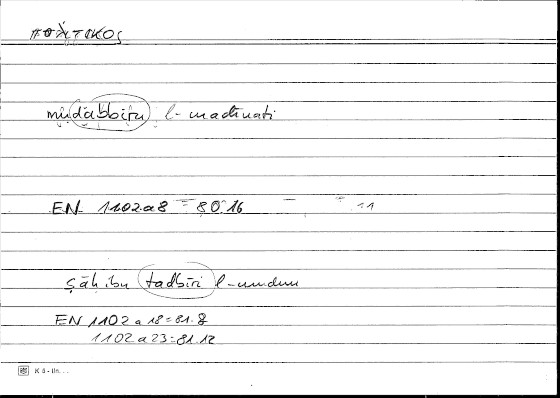 πολιτικός
mudabbiru l-madīnati
EN 1102a8 = 80.16
ṣāḥibu tadbīri l-mudun
EN 1102a18 = 81.8
1102a23 = 81.12
K 6 -